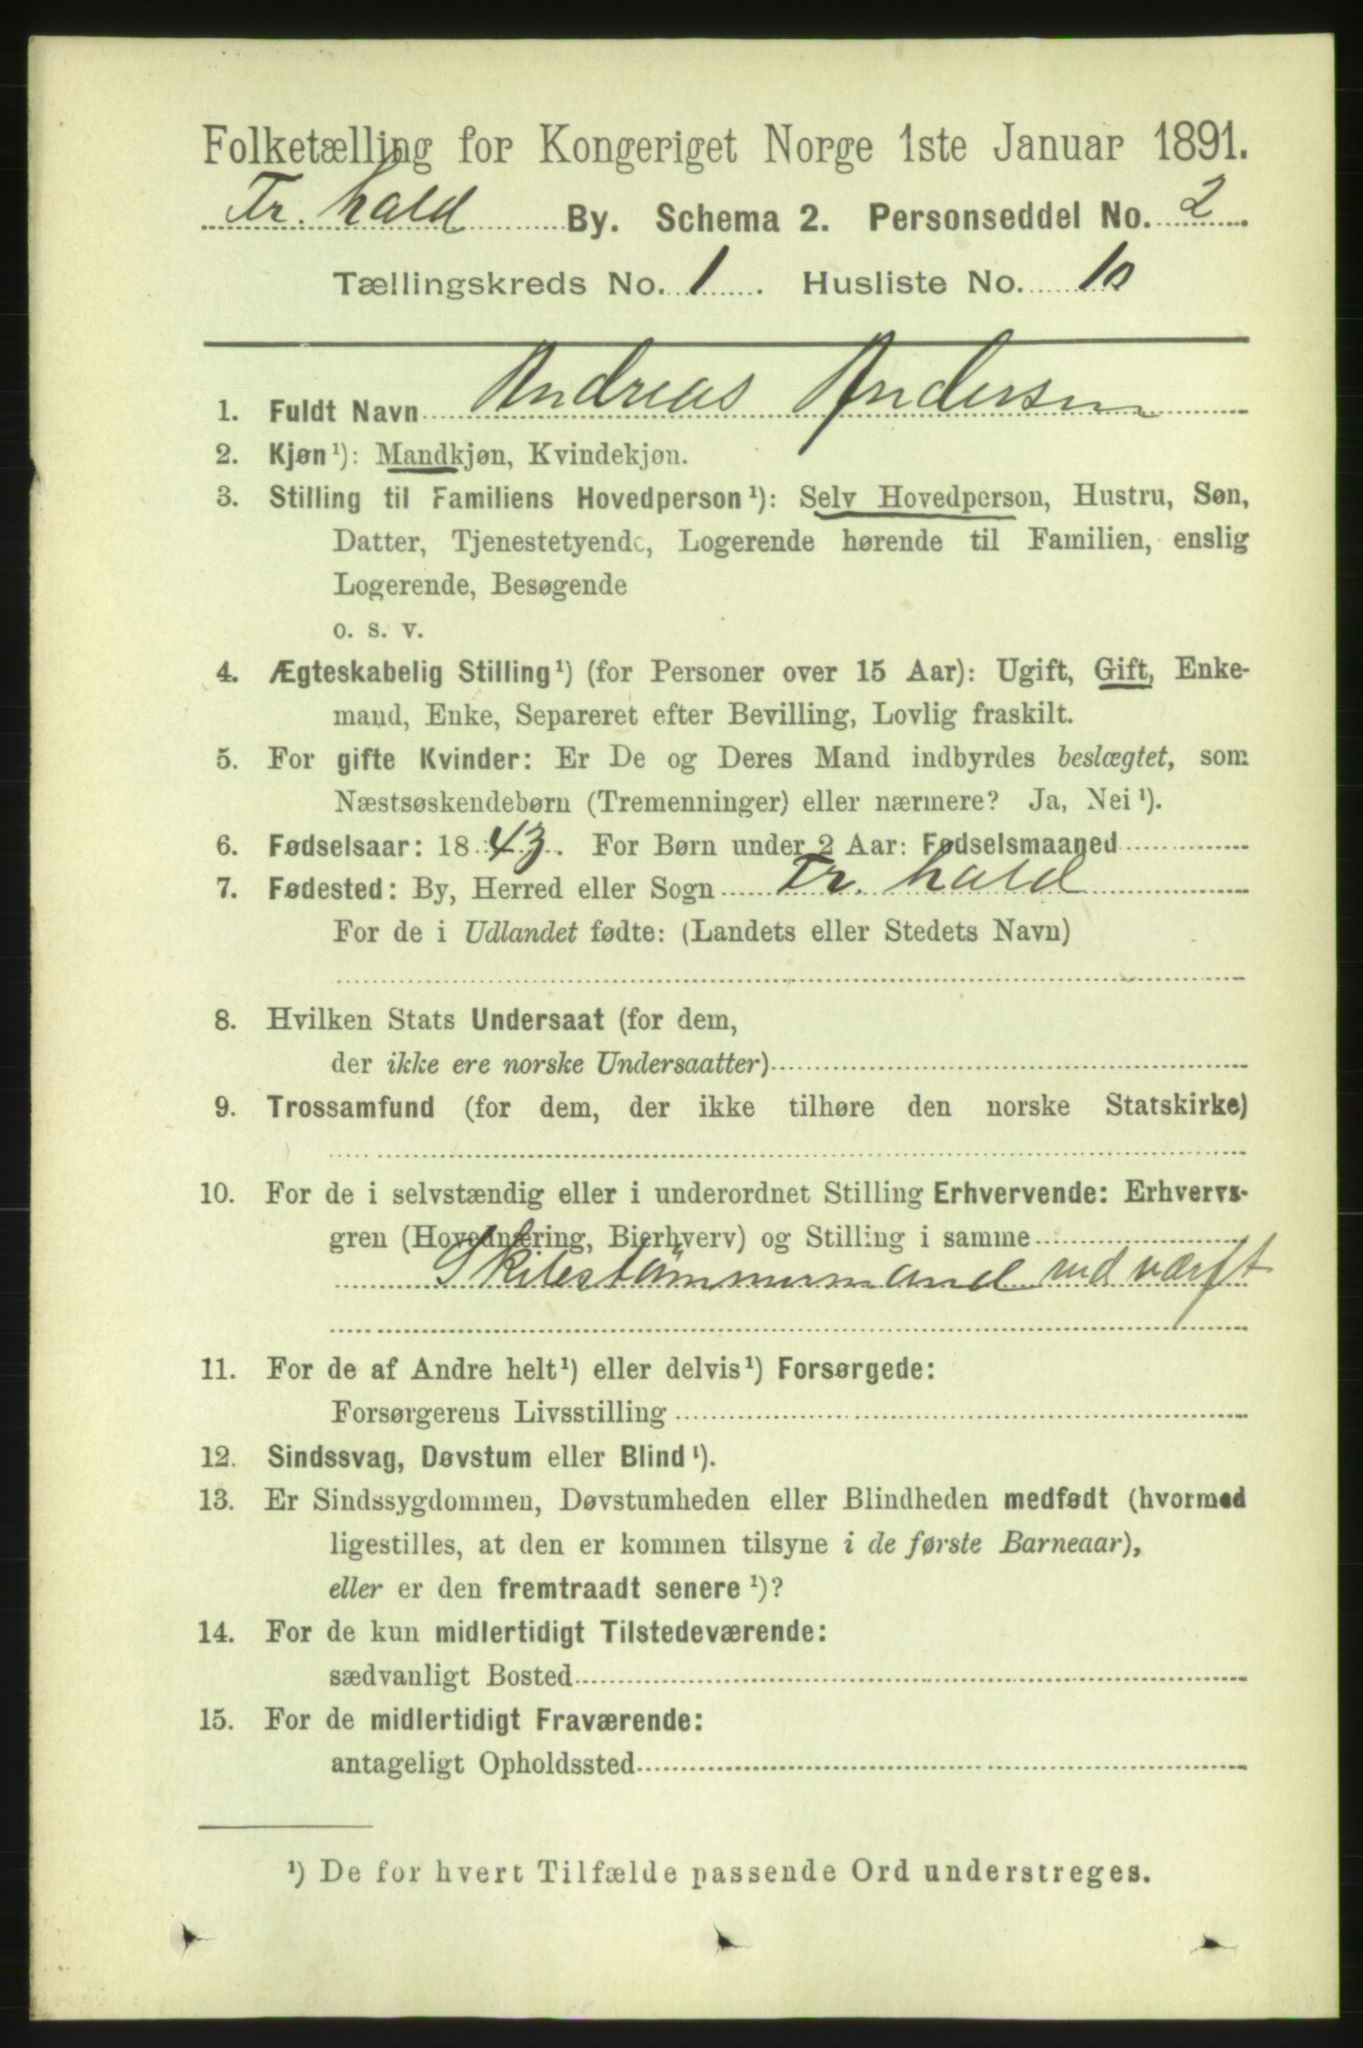 Folketælling for Kongeriget Norge 1ste Januar 1891.
Fr.hald By. Schema 2. Personseddel No. 2.
Tællingskreds No. 1. Husliste No. 10
1. Fuldt Navn Andreas Andersen
2. Kjøn ¹): Mandkjøn, Kvindekjøn.
3. Stilling til Familiens Hovedperson ¹): Selv Hovedperson, Hustru, Søn,
Datter, Tjenestetyende, Logerende hørende til Familien, enslig
Logerende, Besøgende
o. s. v.
4. Ægteskabelig Stilling ¹) (for Personer over 15 Aar): Ugift, Gift, Enke-
mand, Enke, Separeret efter Bevilling, Lovlig fraskilt.
5. For gifte Kvinder: Er De og Deres Mand indbyrdes beslægtet, som
Næstsøskendebørn (Tremenninger) eller nærmere? Ja, Nei ¹).
6. Fødselsaar: 1843. For Børn under 2 Aar: Fødselsmaaned
7. Fødested: By, Herred eller Sogn Fr.hald
For de i Udlandet fødte: (Landets eller Stedets Navn)
8. Hvilken Stats Undersaat (for dem,
der ikke ere norske Undersaatter)
9. Trossamfund (for dem, der ikke tilhøre den norske Statskirke)
10. For de i selvstændig eller i underordnet Stilling Erhvervende: Erhvervs-
gren (Hovednæring, Bierhverv) og Stilling i samme
Skibestømmermand ved værft
11. For de af Andre helt ¹) eller delvis ¹) Forsørgede:
Forsørgerens Livsstilling
12. Sindssvag, Døvstum eller Blind ¹).
13. Er Sindssygdommen, Døvstumheden eller Blindheden medfødt (hvormed
ligestilles, at den er kommen tilsyne i de første Barneaar),
eller er den fremtraadt senere ¹)?
14. For de kun midlertidigt Tilstedeværende:
sædvanligt Bosted
15. For de midlertidigt Fraværende:
antageligt Opholdssted
¹) De for hvert Tilfælde passende Ord understreges.